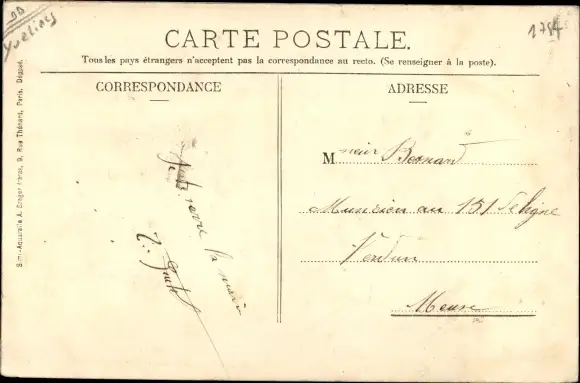 Yvelines
1784
CARTE POSTALE.
Tous les pays étrangers n'acceptent pas la correspondance au recto. (Se renseigner à la poste).
CORRESPONDANCE
ADRESSE
Simi-Aquarelle A. Breger frères, 9, Rue Thénard, Paris. Déposé.
Monsieur Bernard
Musicien au 151 de ligne
Verdun
Meuse
serre la main